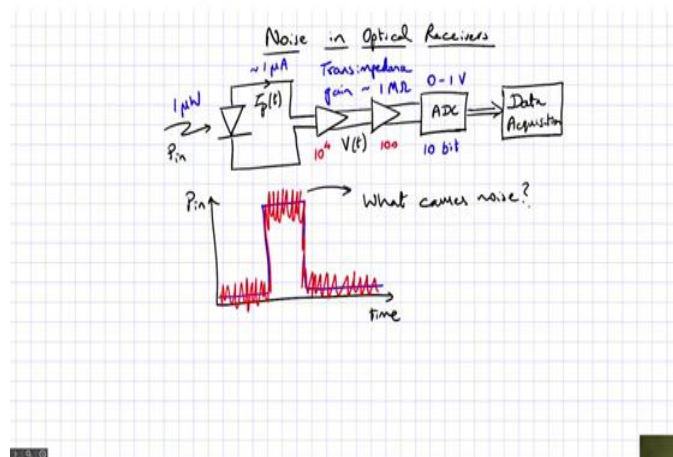 Noise in Optical Receivers
~1μA Transimpedance 0-1V
1μW Ip(t) gain ~ 1MΩ ADC Data
Pin Acquisition
10⁴ V(t) 100 10 bit
Pin What causes noise?
time